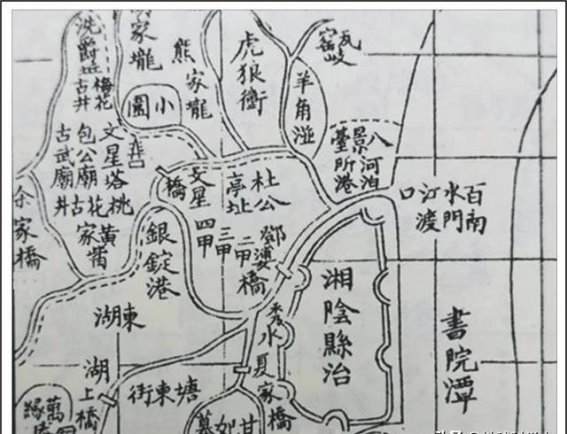 瓦窑
岐
虎狼衝
熊家壠
家壠
洗爵址
梅花
古井
羊角湴
小園
八景臺
河泊所
港
百
水門
南渡
汀
口
杜公
亭址
文星
橋
文星塔
包公廟
古武廟
桃花
古井
黄
家
余家橋
銀錠港
四甲
三甲
二甲
鄧婆橋
湘陰縣治
書院潭
東湖
秀水
夏家橋
湖上橋
塘東街
萬
緣
甘
如
墓